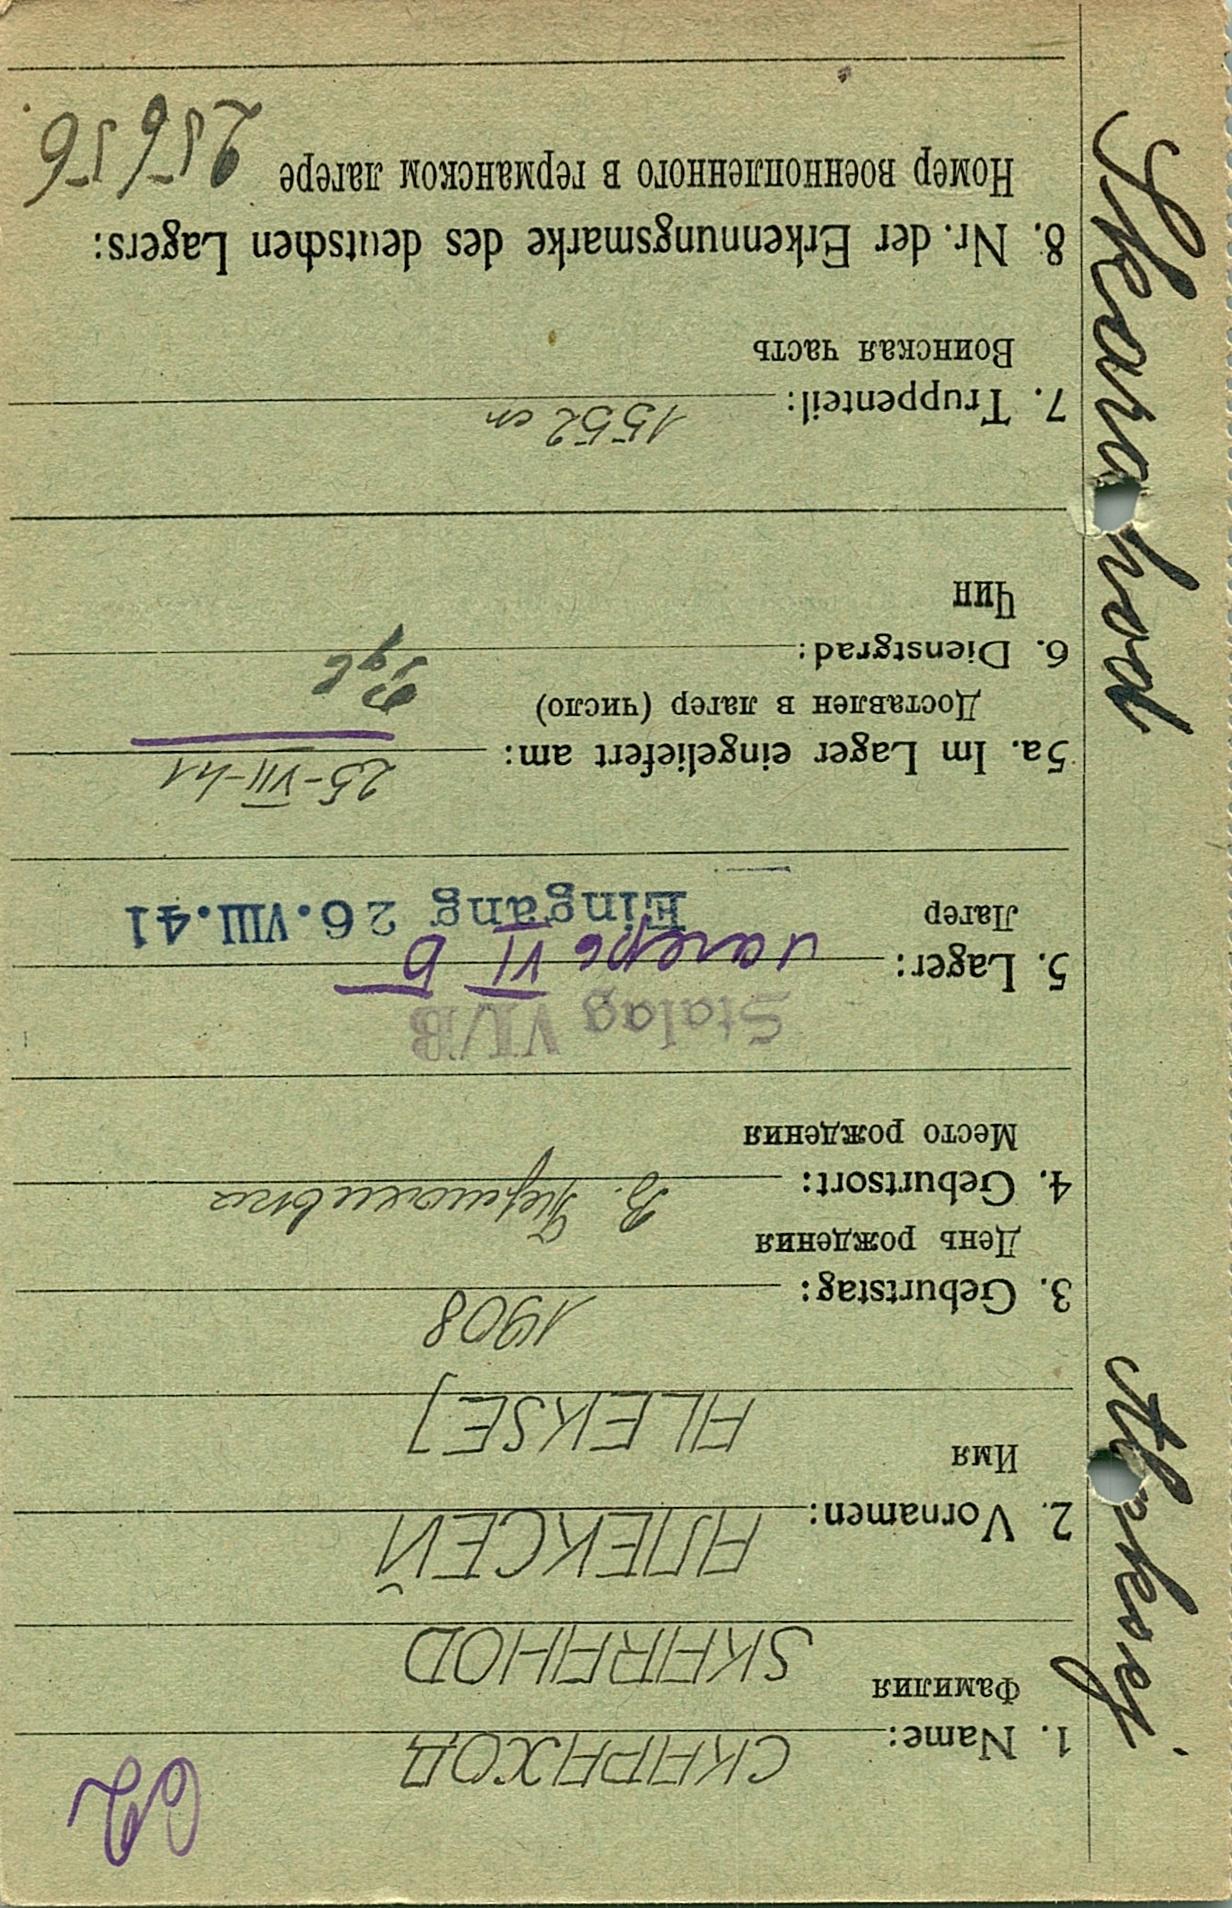 62
1. Name: СКАРАХОД
Фамилия
SKARAHOD
2. Vornamen: АЛЕКСЕЙ
Имя
ALEKSEJ
3. Geburtstag: 1908
День рождения
4. Geburtsort: В.
Место рождения
Stalag VI/B
5. Lager: лагерь VI Б
Лагер
Eingang 26.VIII.41
5a. Im Lager eingeliefert am: 25-VII-41
Доставлен в лагер (число)
6. Dienstgrad:
Чин
7. Truppenteil: 1552
Воинская часть
8. Nr. der Erkennungsmarke des deutschen Lagers:
Номер военнопленного в германском лагере 25656
Skarahod Aleksej